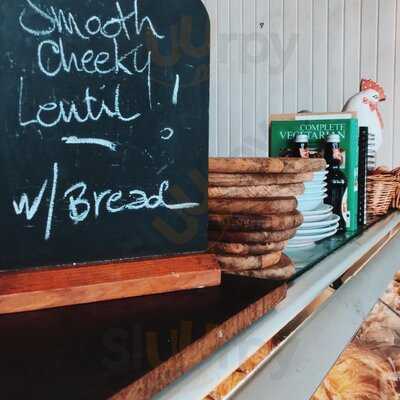 Smooth
Cheeky
Lentil !
w/ Bread
COMPLETE
VEGETARIAN